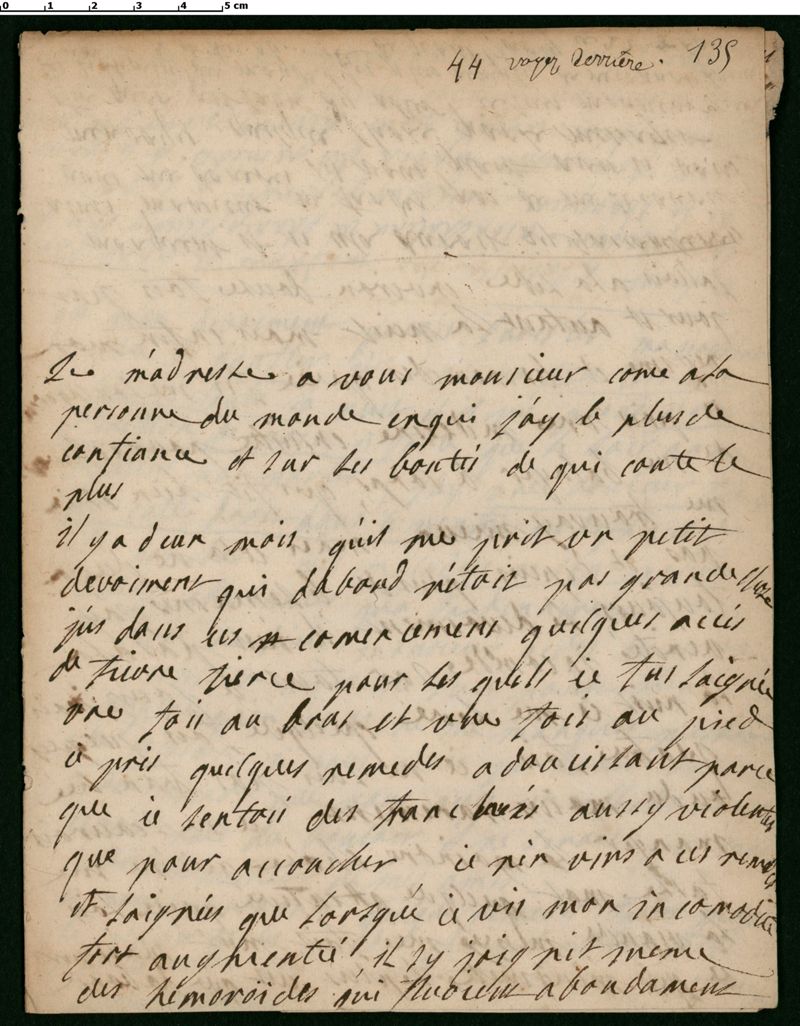 0 1 2 3 4 5 cm
44 voyez derriere. 135
Je m'adresse a vous monsieur come a la
personne du monde en qui j'ay le plus de
confiance et sur les bontés de qui conte le
plus
il y a deux mois qu'il me prit un petit
devoiment qui dabord n'étoit pas grande chose
j'us dans ces comencemens quelques accés
de fievre tierce pour les quels ie fus saignée
une fois au bras et une fois au pied
ie pris quelques remedes adoucissant parce
que ie sentois des tranchées aussy violentes
que pour accoucher ie n'en vins a ces remedes
et saignées que lorsque ie vis mon incomodité
fort augmenté il sy joignit meme
des hemoroides qui fluoient abondament